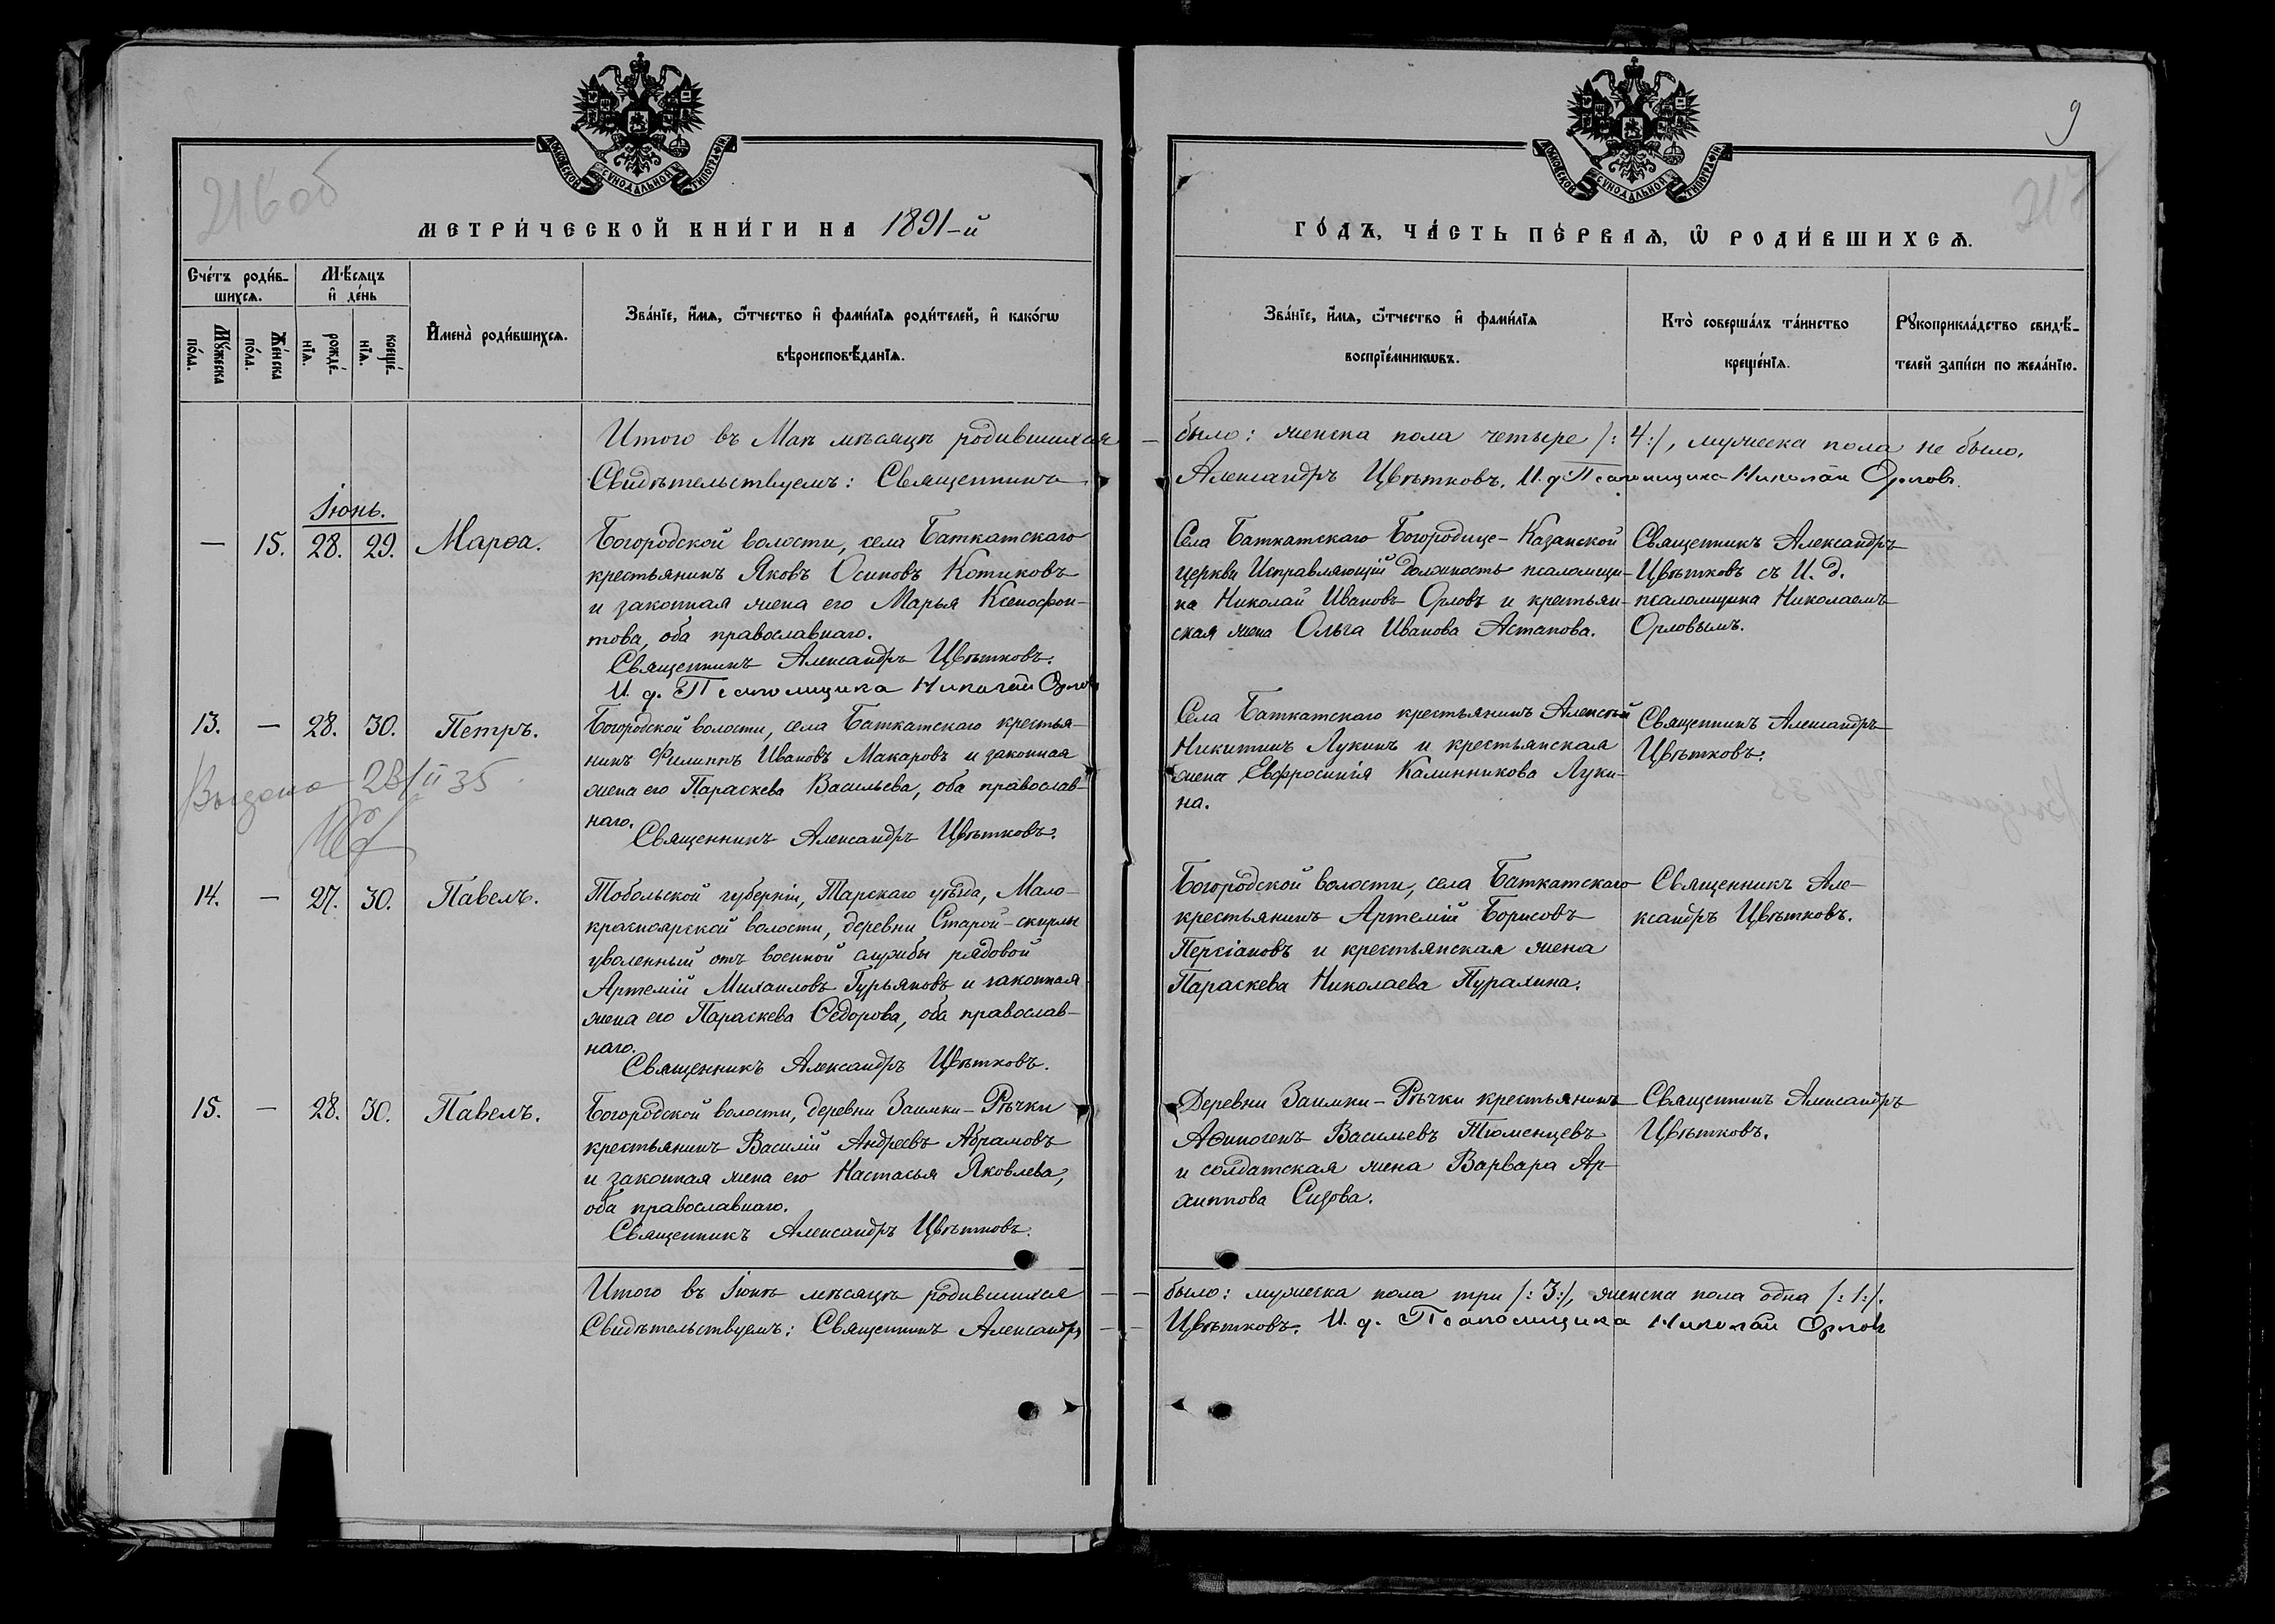 216 об
МОСКОВСКОЙ СѴНОДАЛЬНОЙ ТИПОГРАФІИ
МЕТРИ́ЧЕСКОЙ КНИ́ГИ НА 1891-й
Сче́тъ роди́в-
шихсѧ.
Мѣ́сѧцъ
и҆ де́нь
Мꙋ́жеска
по́ла.
Же́нска
по́ла.
рожде́-
нїѧ.
креще́-
нїѧ.
И҆мена̀ роди́вшихсѧ.
Зва́нїе, и҆́мѧ, ѻ҆́тчество и҆ фами́лїѧ роди́телей, и҆ како́гѡ
вѣроисповѣ́данїѧ.
Итого въ Маѣ мѣсяцѣ родившихся
Свидѣтельствуемъ: Священникъ
Іюнь.
— 15. 28. 29. Марѳа.
Богородской волости, села Баткатскаго
крестьянинъ Яковъ Осиповъ Котиковъ
и законная жена его Марья Ксенофон-
това, оба православнаго.
Священникъ Александръ Цвѣтковъ.
И. д. Псаломщика Николай Орловъ
13. — 28. 30. Петръ.
Богородской волости, села Баткатскаго крестья-
нинъ Филиппъ Ивановъ Макаровъ и законная
жена его Параскева Васильева, оба православ-
наго.
Священникъ Александръ Цвѣтковъ.
Выдано 23/II 35
14. — 27. 30. Павелъ.
Тобольской губерніи, Тарскаго уѣзда, Мало-
красноярской волости, деревни Старой-скирлы
уволенный отъ военной службы рядовой
Артемій Михаиловъ Гурьяновъ и законная
жена его Параскева Ѳедорова, оба православ-
наго.
Священникъ Александръ Цвѣтковъ.
15. — 28. 30. Павелъ.
Богородской волости, деревни Заимки-Рѣчки
крестьянинъ Василій Андреевъ Абрамовъ
и законная жена его Настасья Яковлева,
оба православнаго.
Священникъ Александръ Цвѣтковъ.
Итого въ Іюнѣ мѣсяцѣ родившихся
Свидѣтельствуемъ: Священникъ Александръ
9
217
МОСКОВСКОЙ СѴНОДАЛЬНОЙ ТИПОГРАФІИ
ГО́ДЪ, ЧА́СТЬ ПЕ́РВАѦ, Ѡ҆ РОДИ́ВШИХСѦ.
Зва́нїе, и҆́мѧ, ѻ҆́тчество и҆ фами́лїѧ
воспрїе́мникѡвъ.
Кто̀ соверша́лъ та́инство
креще́нїѧ.
Рꙋкоприкла́дство свидѣ́-
телей за́писи по жела́нїю.
было: женска пола четыре /:4:/, мужеска пола не было.
Александръ Цвѣтковъ. И. д. Псаломщика Николай Орловъ.
Села Баткатскаго Богородице-Казанской
церкви Исправляющій должность псаломщи-
ка Николай Ивановъ Орловъ и крестьян-
ская жена Ольга Иванова Астапова.
Священникъ Александръ
Цвѣтковъ съ И. д.
псаломщика Николаемъ
Орловымъ.
Села Баткатскаго крестьянинъ Алексѣй
Никитинъ Лукинъ и крестьянская
жена Евфросинія Калинникова Луки-
на.
Священникъ Александръ
Цвѣтковъ.
Богородской волости, села Баткатскаго
крестьянинъ Артемій Борисовъ
Персіановъ и крестьянская жена
Параскева Николаева Пурахина.
Священникъ Але-
ксандръ Цвѣтковъ.
Деревни Заимки-Рѣчки крестьянинъ
Аѳиногенъ Васильевъ Тюменцевъ
и солдатская жена Варвара Ар-
хиппова Сизова.
Священникъ Александръ
Цвѣтковъ.
было: мужеска пола три /:3:/, женска пола одна /:1:/.
Цвѣтковъ. И. д. Псаломщика Николай Орловъ